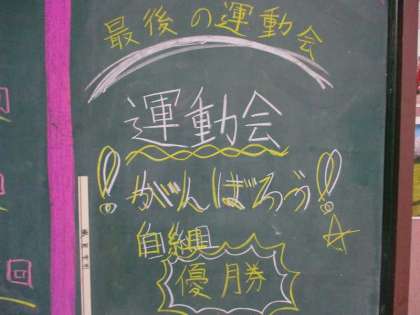 最後の運動会
運動会
!! がんばろう!! ☆
白組
優勝
回